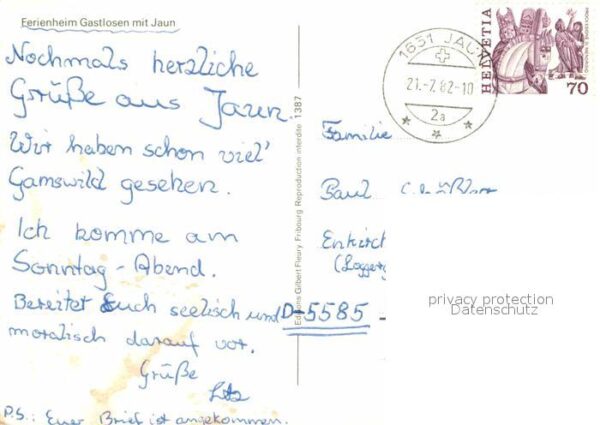 Ferienheim Gastlosen mit Jaun
Nochmals herzliche
Grüße aus Jaun.
Wir haben schon viel
Gamswild gesehen.
Ich komme am
Sonntag-Abend.
Bereitet Euch seelisch und
moralisch darauf vor.
Grüße
P.S.: Euer Brief ist angekommen.
Editions Gilbert Fleury Fribourg Reproduction interdite 1387
1631 JAUN
21.-7.82-10
2a
HELVETIA
70
Familie
Paul
Enkirch
D-5585
privacy protection
Datenschutz